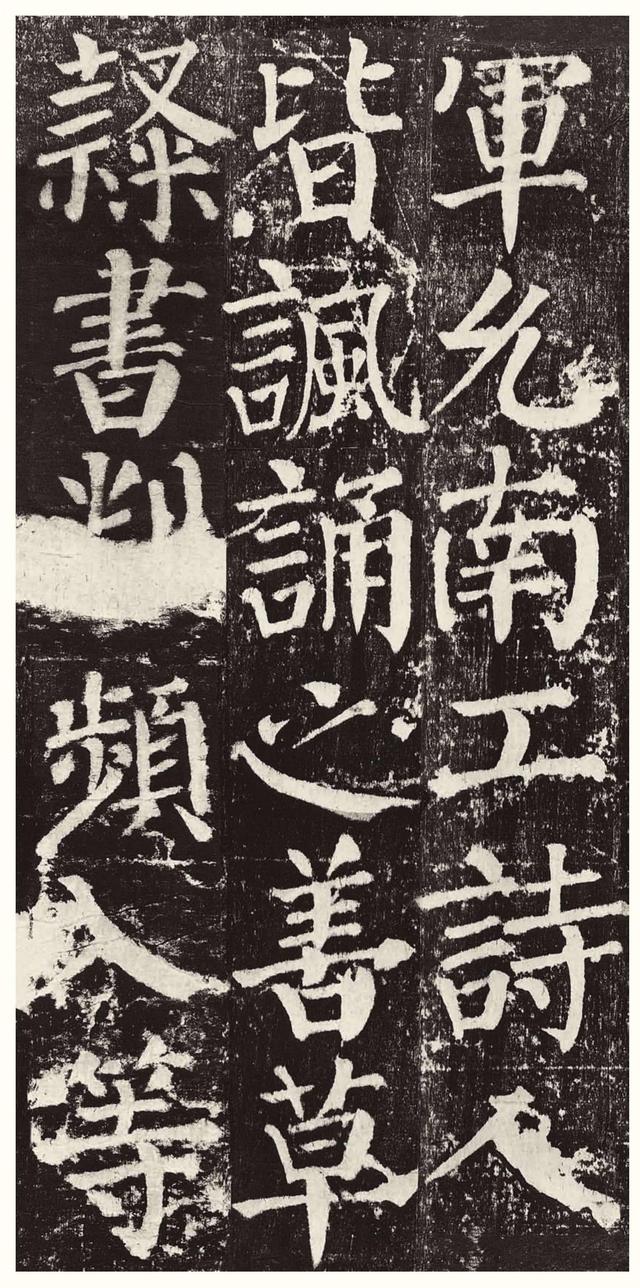 軍允南工詩人
皆諷誦之善草
隸書判頻入等